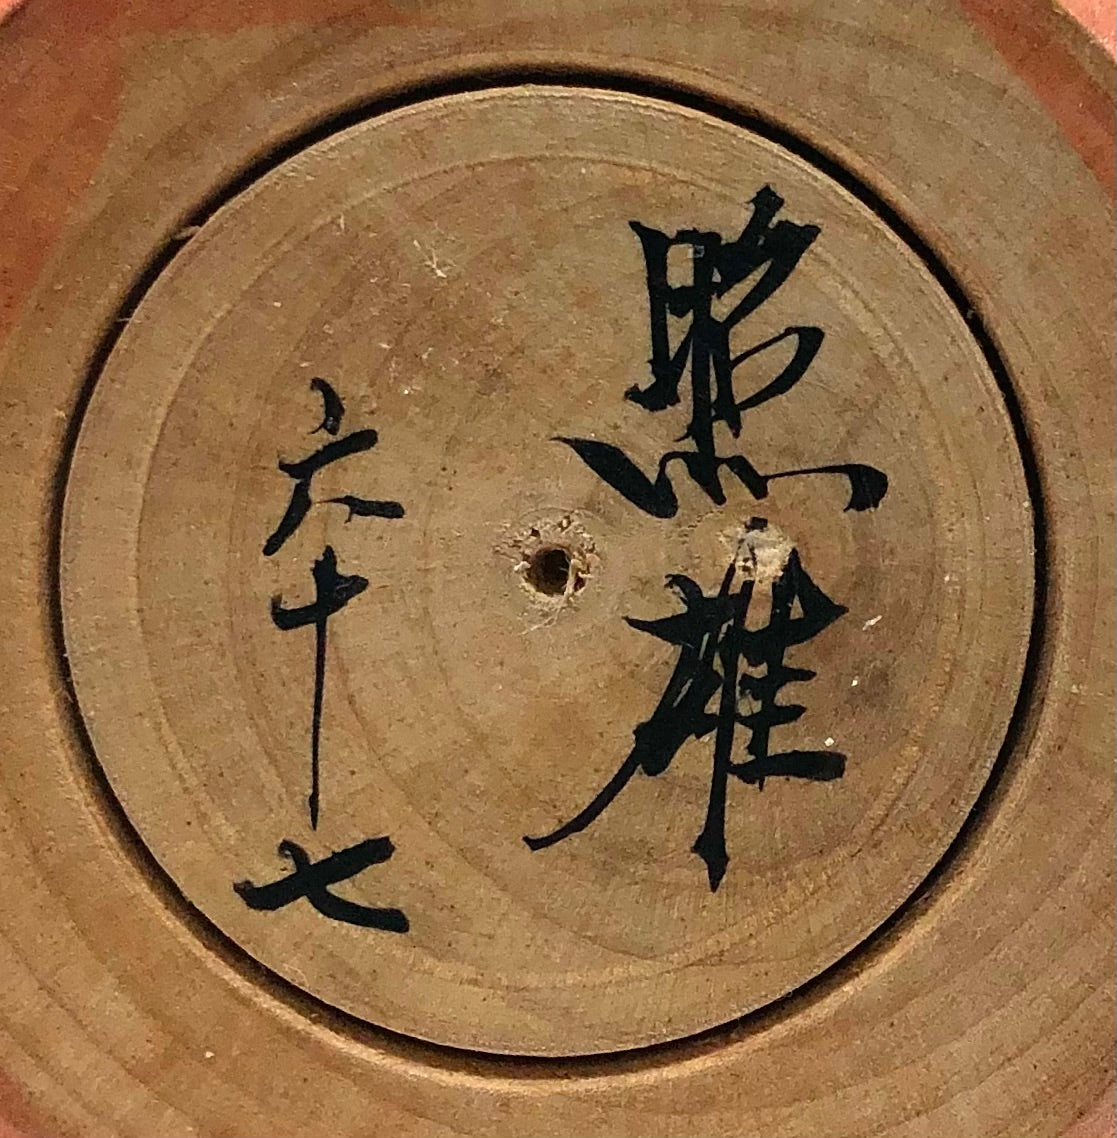 照雄
六十七